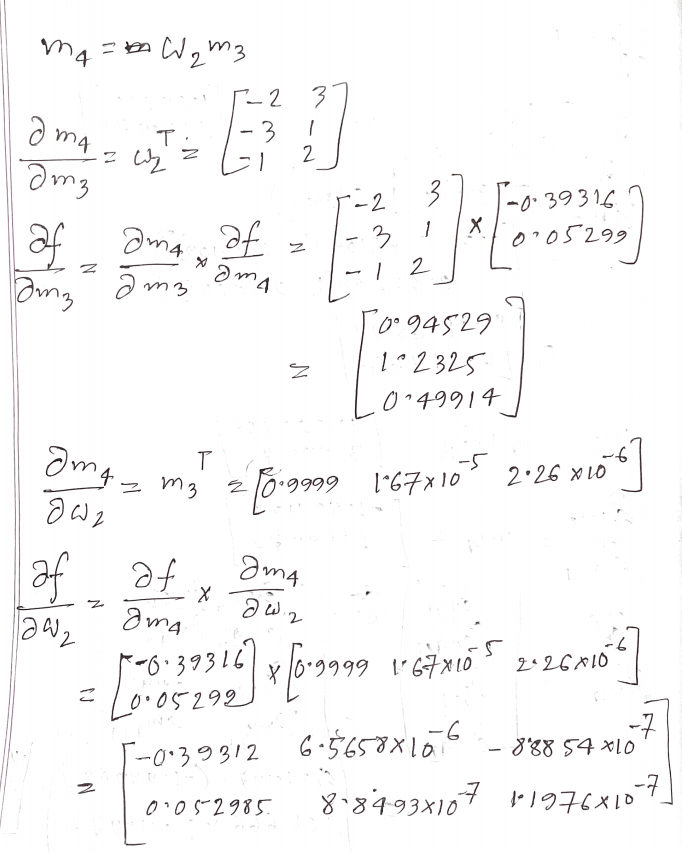 m₄ = W₂ m₃
∂m₄/∂m₃ = W₂ᵀ = [-2 3; -3 1; -1 2]
∂f/∂m₃ = ∂m₄/∂m₃ × ∂f/∂m₄ = [-2 3; -3 1; -1 2] × [-0.39316; 0.05299]
= [0.94529; 1.2325; 0.49914]
∂m₄/∂W₂ = m₃ᵀ = [0.9999 1.67×10⁻⁵ 2.26×10⁻⁶]
∂f/∂W₂ = ∂f/∂m₄ × ∂m₄/∂W₂
= [-0.39316; 0.05299] × [0.9999 1.67×10⁻⁵ 2.26×10⁻⁶]
= [-0.39312 6.5658×10⁻⁶ -8.8854×10⁻⁷; 0.052985 8.8493×10⁻⁷ 1.1976×10⁻⁷]